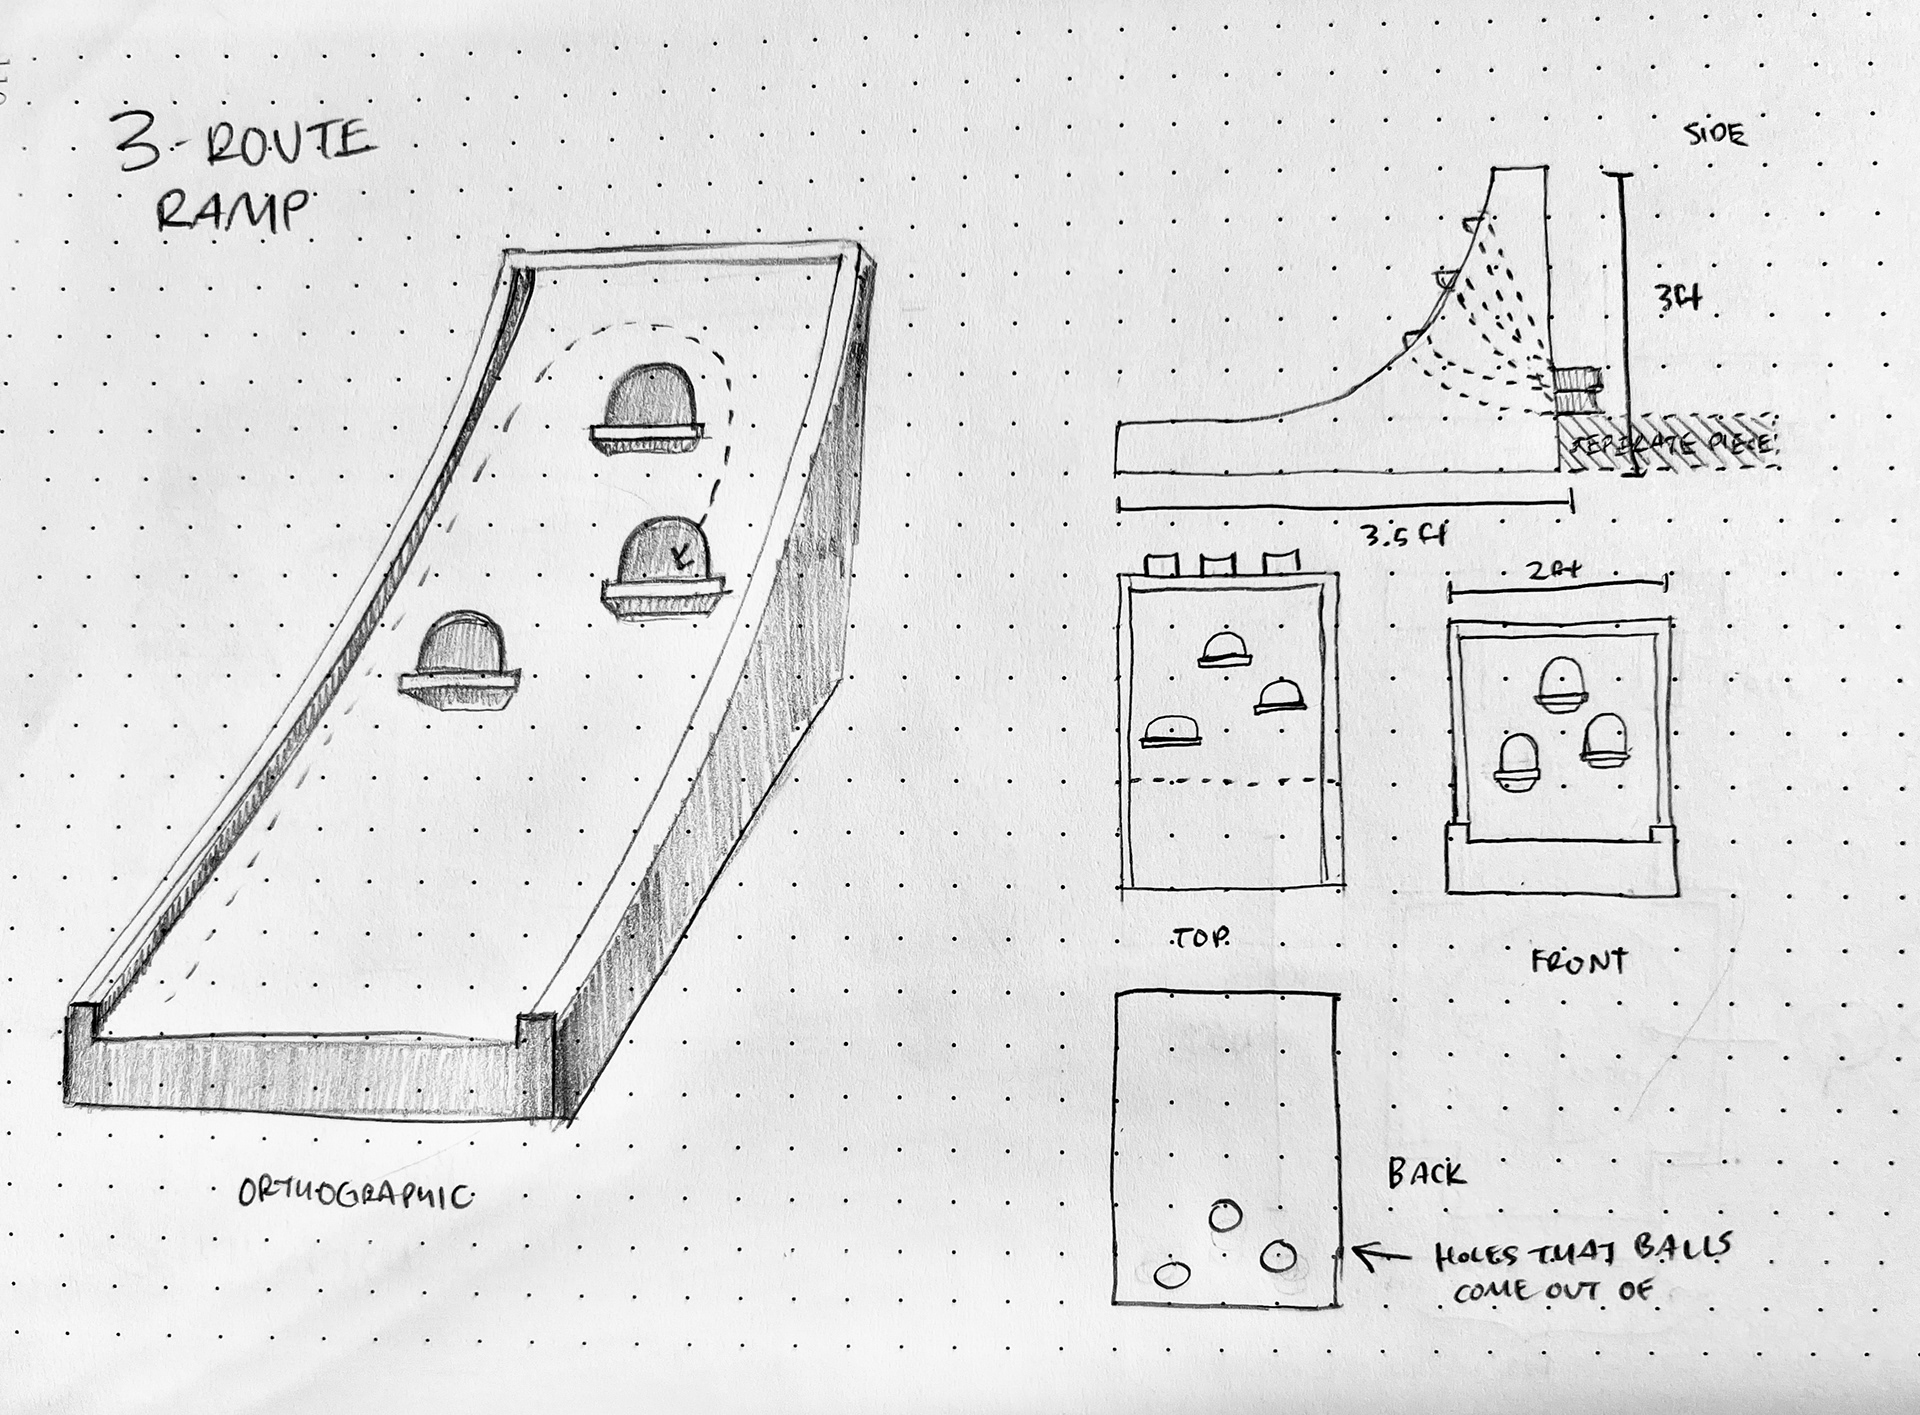 3-ROUTE
RAMP
ORTHOGRAPHIC
SIDE
3ft
SEPERATE PIECE
3.5 ft
2ft
TOP
FRONT
BACK
HOLES THAT BALLS
COME OUT OF